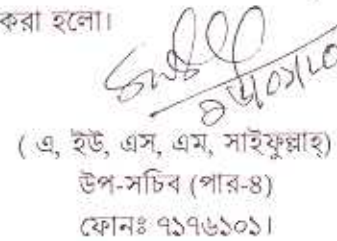 করা হলো।
( এ, ইউ, এস, এম, সাইফুল্লাহ্)
উপ-সচিব (পার-৪)
ফোনঃ ৭১৭৬১০১।